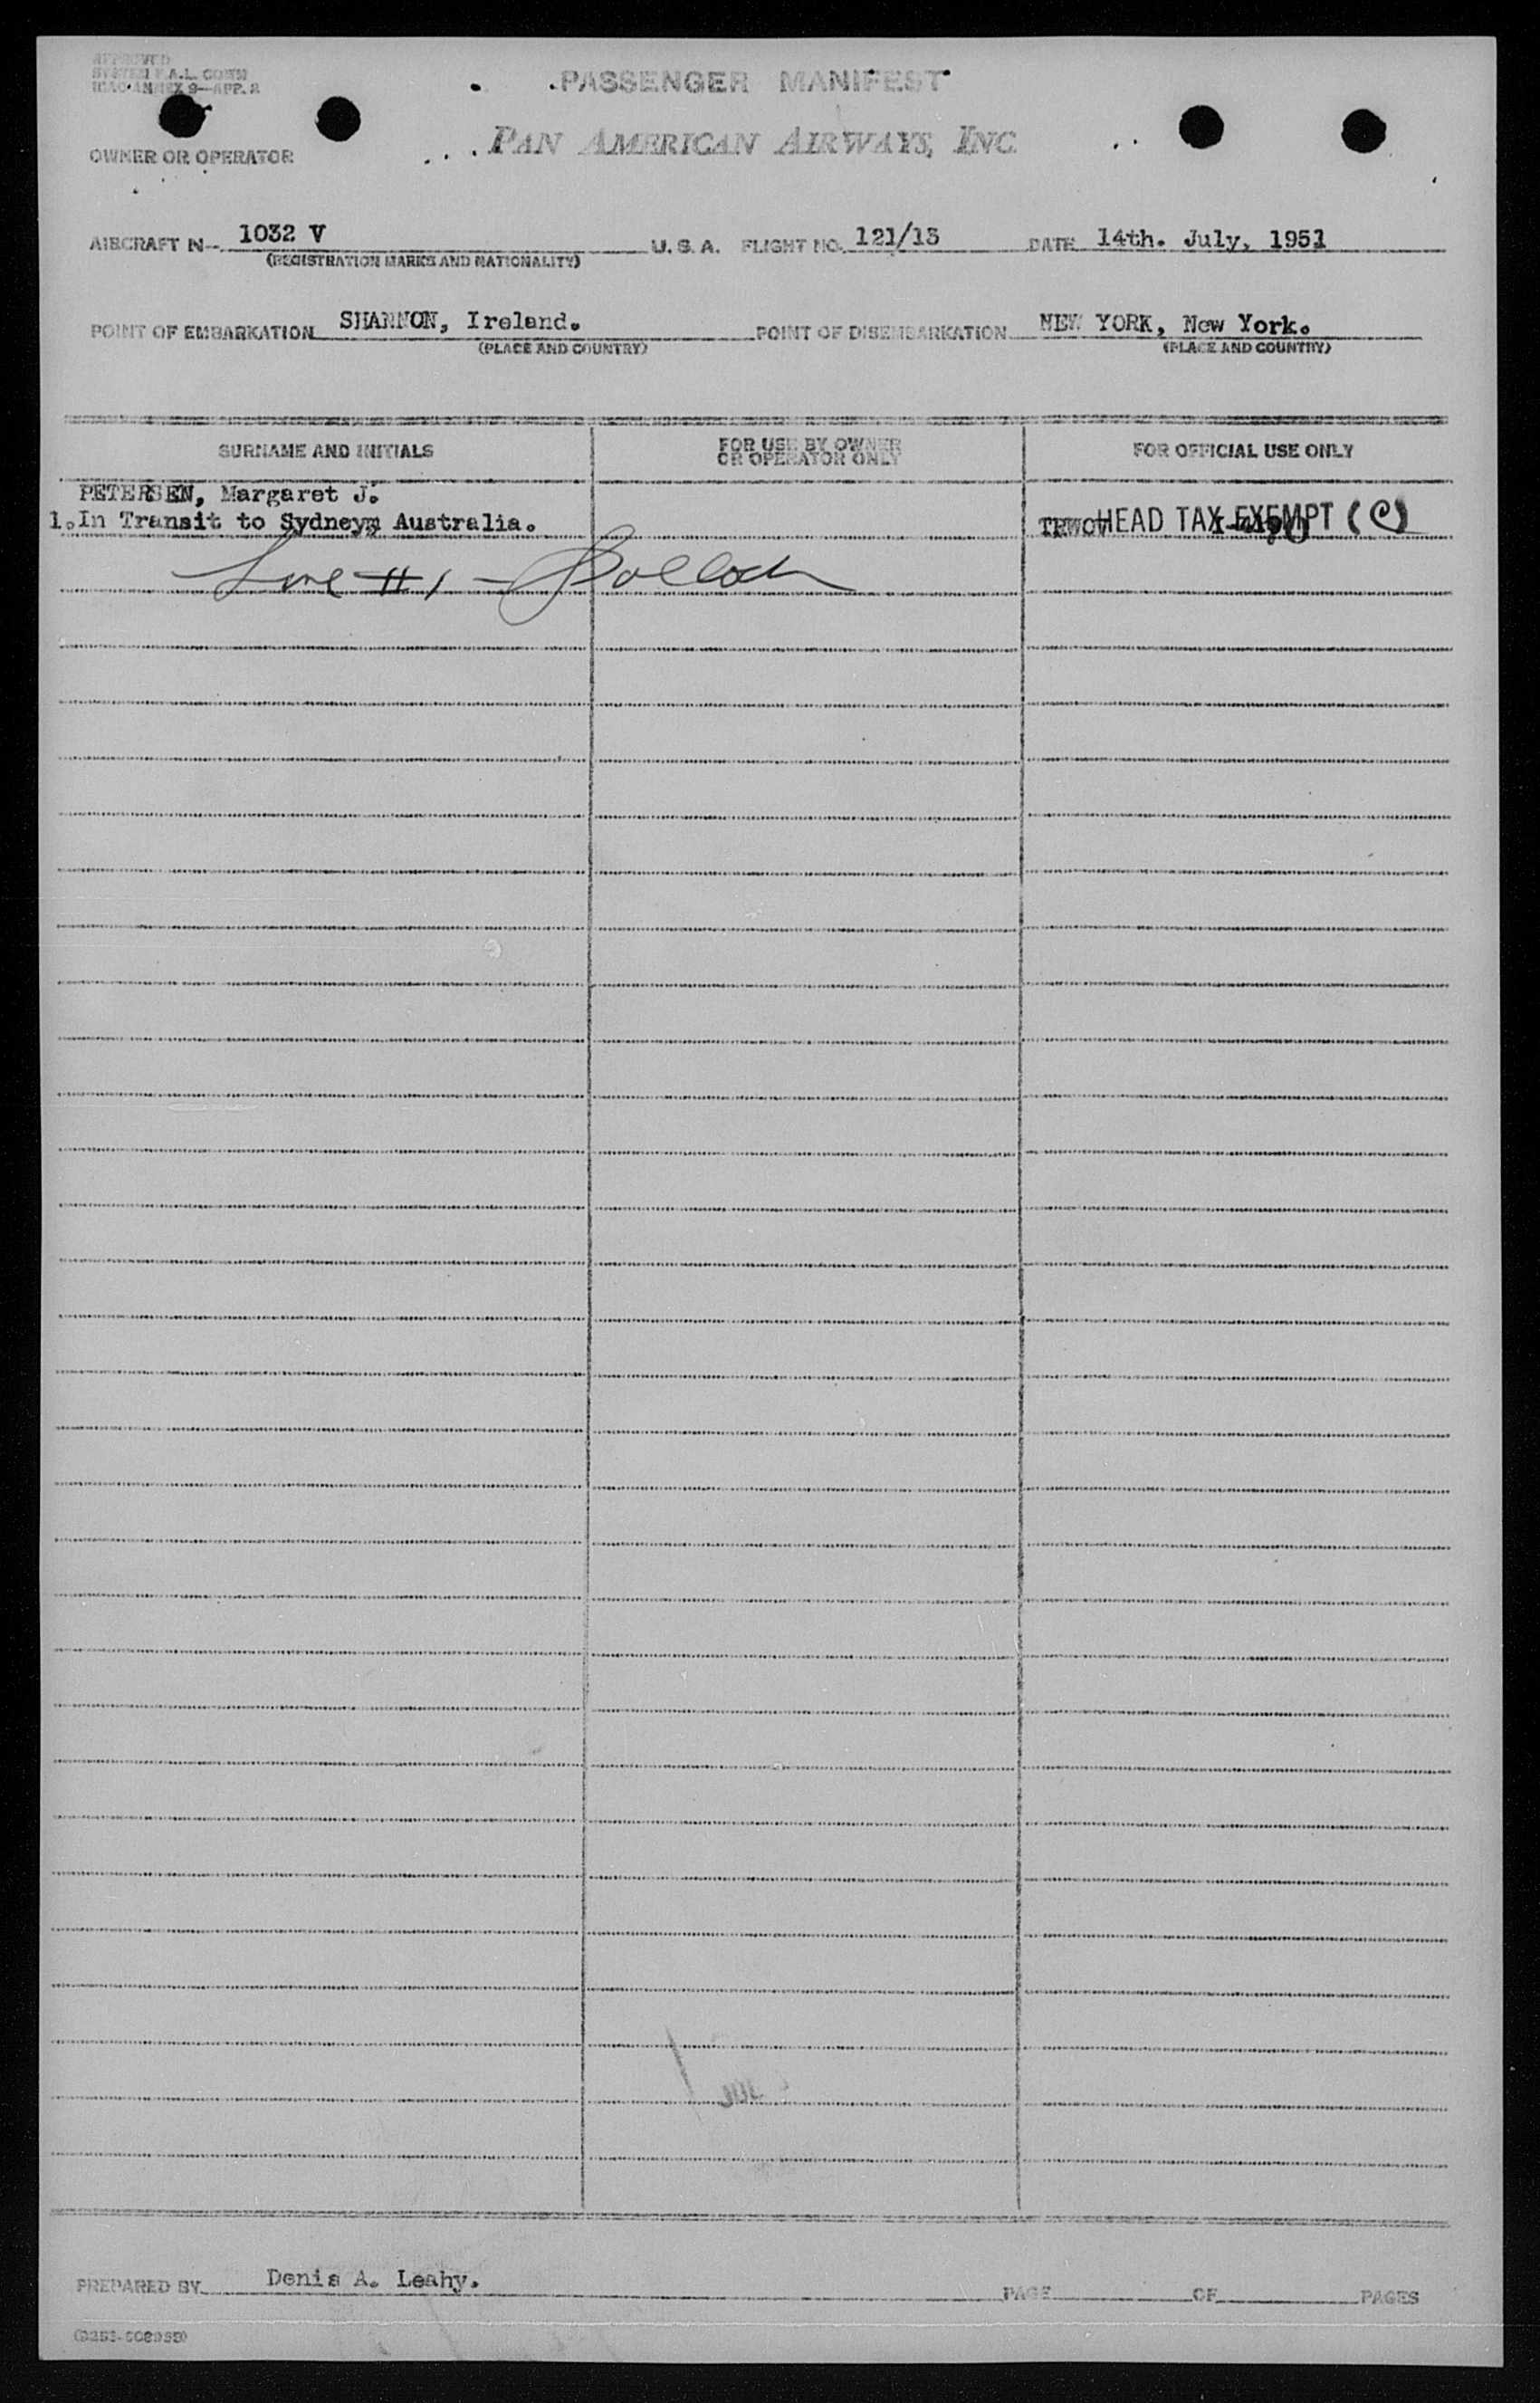 APPROVED
SYSTEM F.A.L. COMM
ICAO ANNEX 9—APP. 2
PASSENGER MANIFEST
OWNER OR OPERATOR
PAN AMERICAN AIRWAYS, INC
AIRCRAFT N- 1032 V U. S. A. FLIGHT NO. 121/13 DATE 14th. July, 1951
(REGISTRATION MARKS AND NATIONALITY)
POINT OF EMBARKATION SHANNON, Ireland. POINT OF DISEMBARKATION NEW YORK, New York.
(PLACE AND COUNTRY) (PLACE AND COUNTRY)
SURNAME AND INITIALS FOR USE BY OWNER OR OPERATOR ONLY FOR OFFICIAL USE ONLY
PETERSEN, Margaret J.
1. In Transit to Sydney, Australia. TRWOV HEAD TAX EXEMPT (C)
Line #1 - Bolloch
PREPARED BY Denis A. Leahy. PAGE OF PAGES